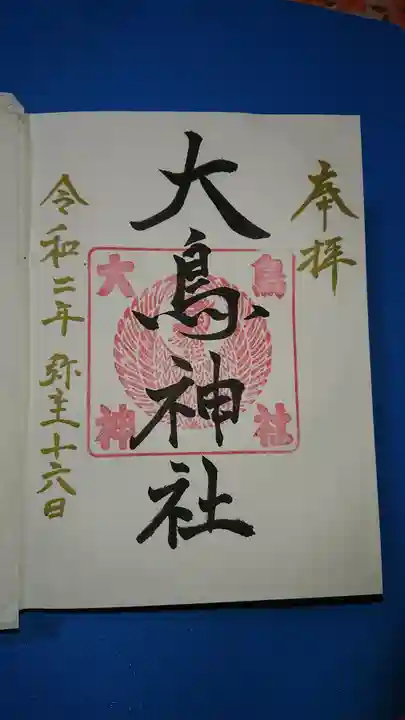 奉拝
大鳥神社
大鳥神社
令和二年 弥生十六日